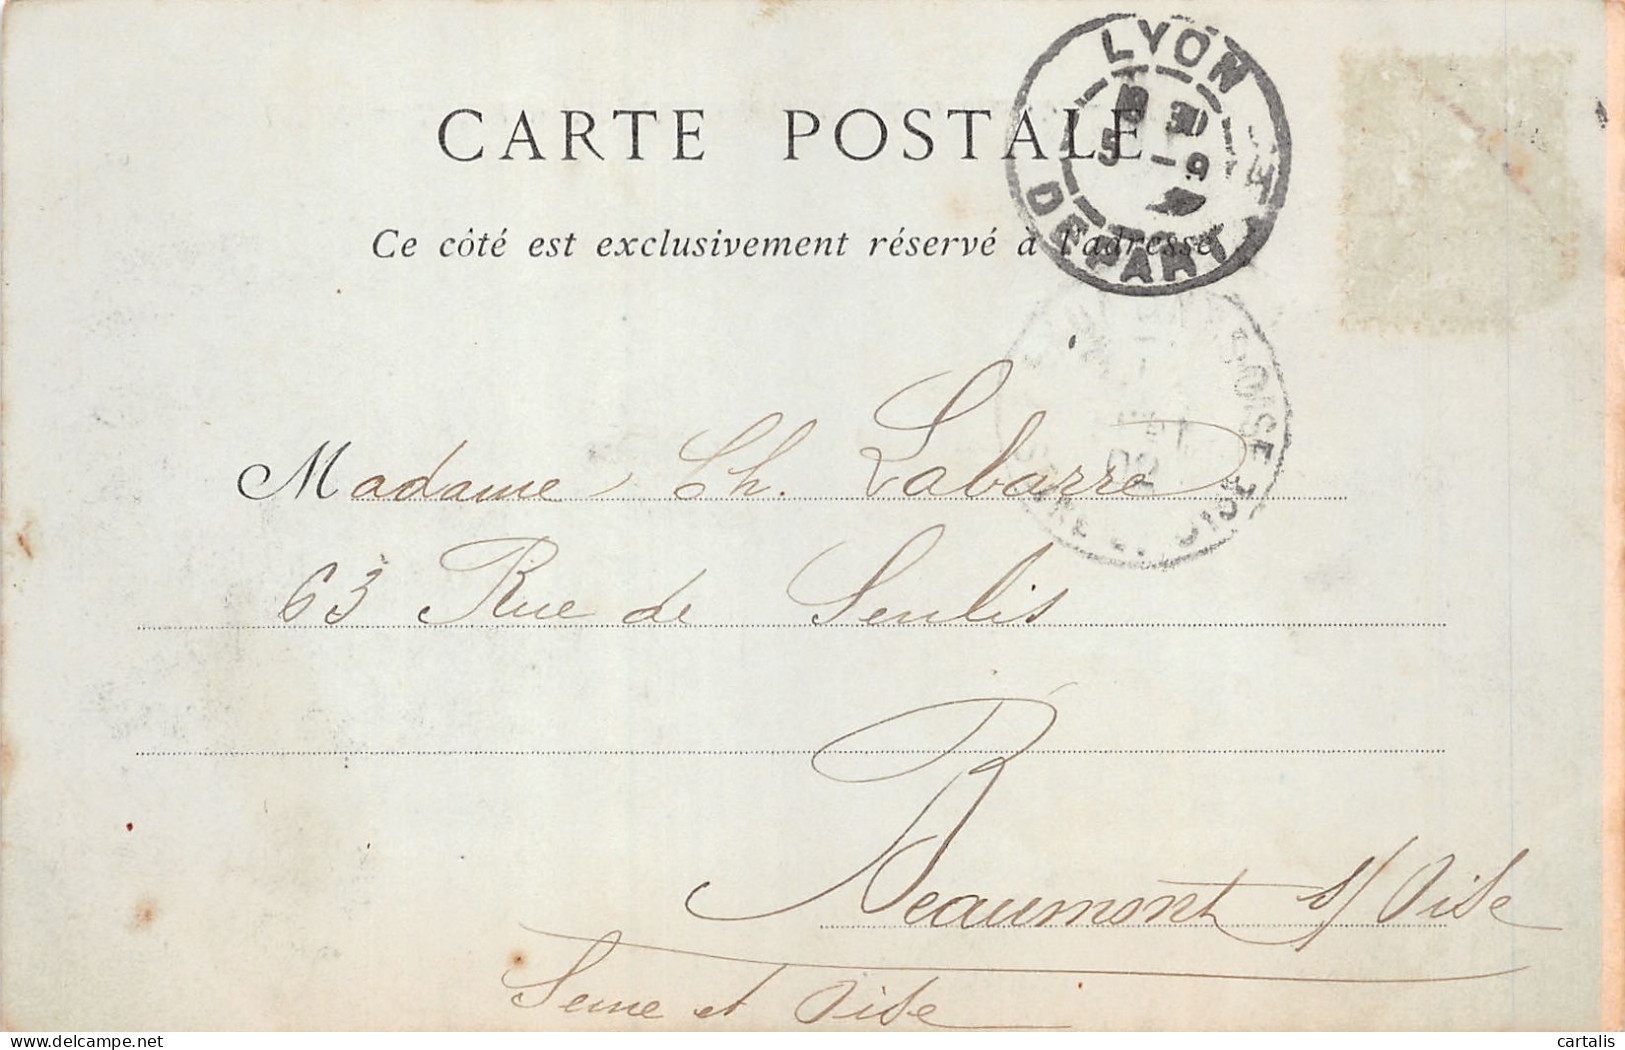 CARTE POSTALE
Ce côté est exclusivement réservé à l'adresse
LYON
5 -9
DEPART
OISE
02
Madame Ch. Labarre
63 Rue de Senlis
Beaumont s/ Oise
Seine et Oise
delcampe.net
cartalis